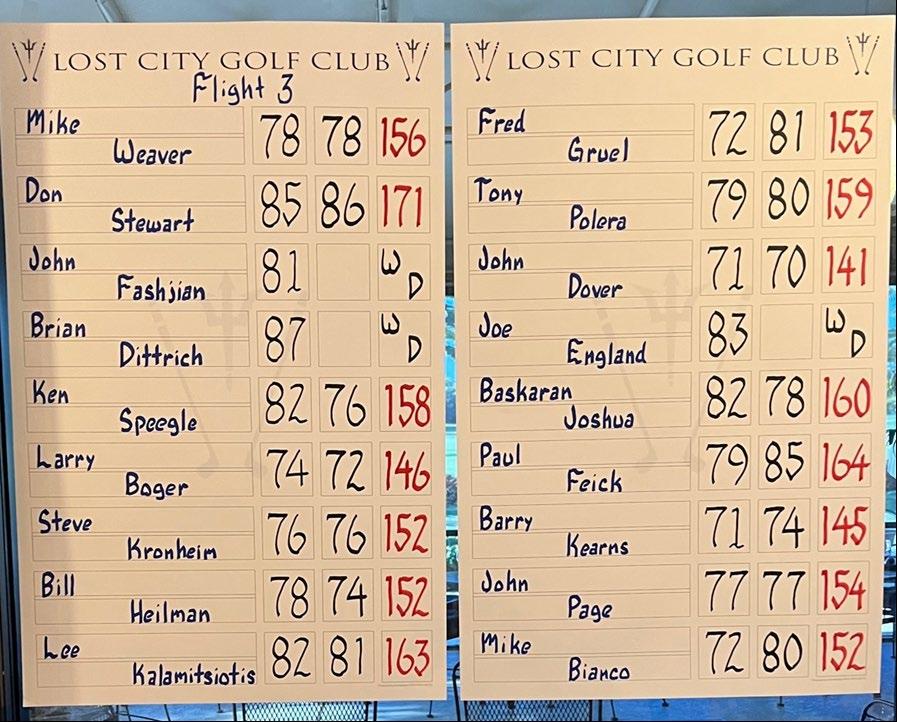 LOST CITY GOLF CLUB
Flight 3
Mike Weaver 78 78 156
Don Stewart 85 86 171
John Fashjian 81 WD
Brian Dittrich 87 WD
Ken Speegle 82 76 158
Larry Boger 74 72 146
Steve Kronheim 76 76 152
Bill Heilman 78 74 152
Lee Kalamitsiotis 82 81 163
LOST CITY GOLF CLUB
Fred Gruel 72 81 153
Tony Polera 79 80 159
John Dover 71 70 141
Joe England 83 WD
Baskaran Joshua 82 78 160
Paul Feick 79 85 164
Barry Kearns 71 74 145
John Page 77 77 154
Mike Bianco 72 80 152